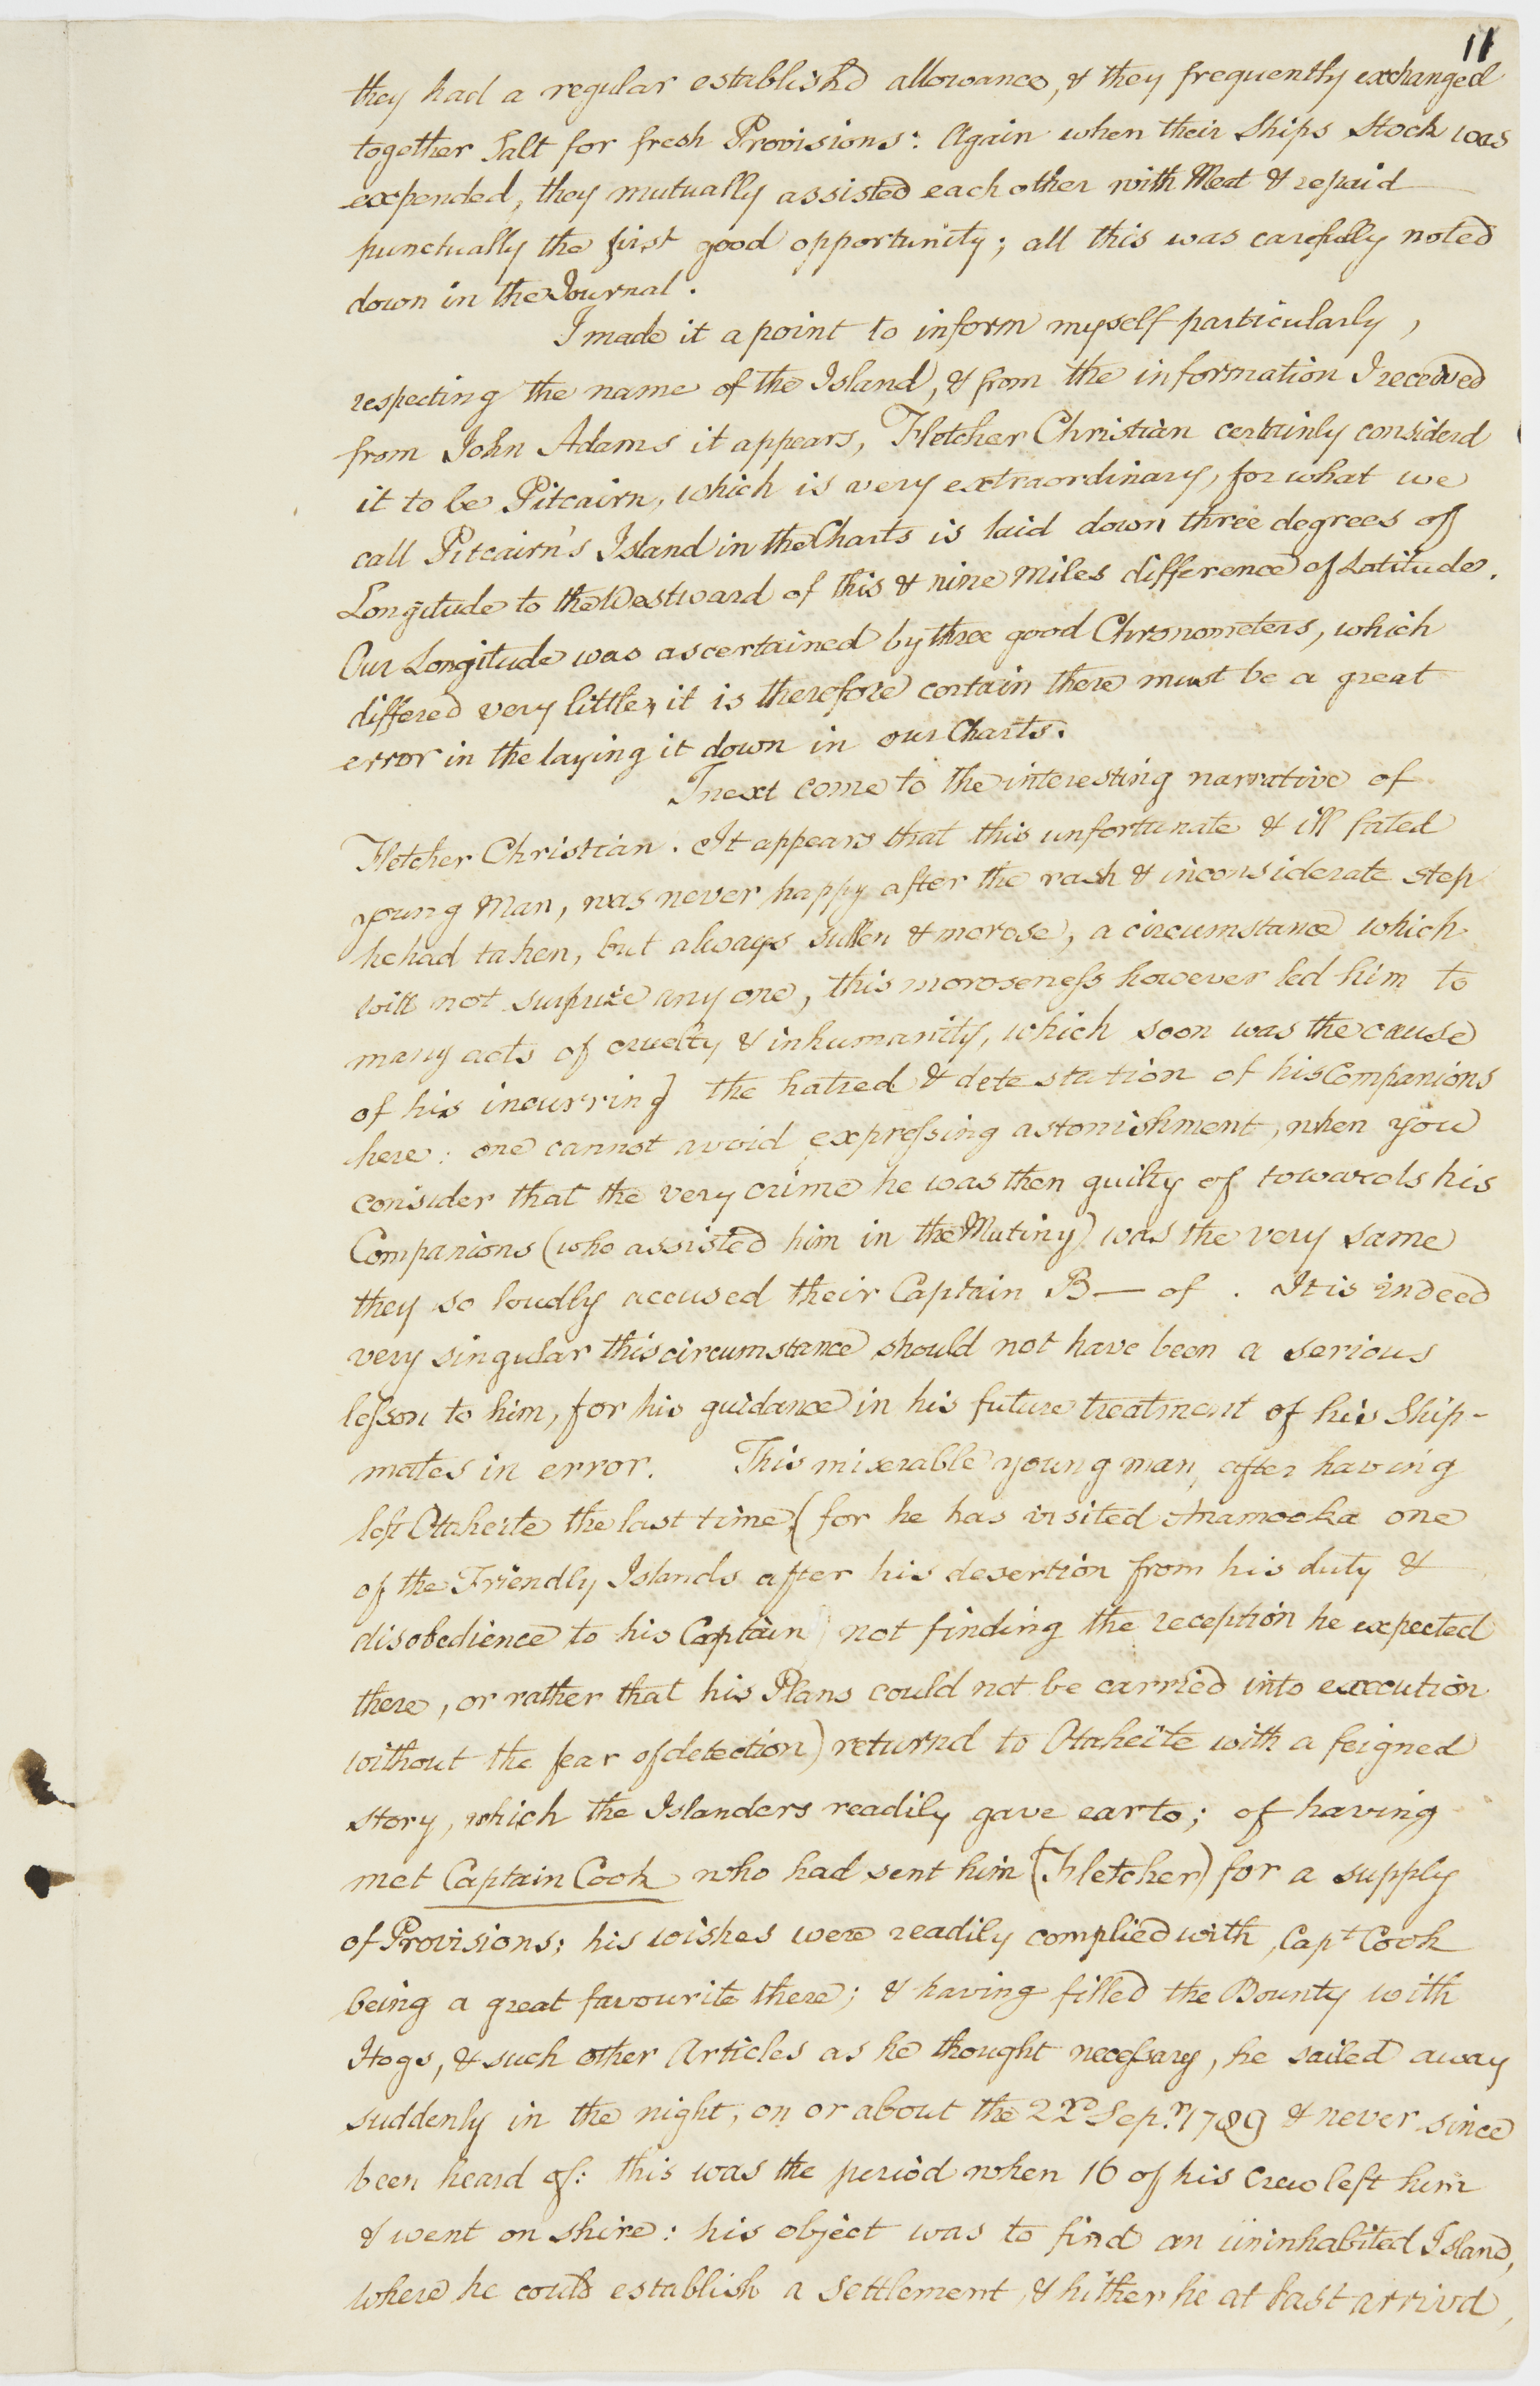 11
they had a regular establish'd allowance, & they frequently exchanged
together Salt for fresh Provisions: Again when their Ships Stock was
expended, they mutually assisted each other with Meat & repaid
punctually the first good opportunity; all this was carefully noted
down in the Journal.
I made it a point to inform myself particularly,
respecting the name of the Island, & from the information I received
from John Adams it appears, Fletcher Christian certainly considerd
it to be Pitcairn, which is very extraordinary, for what we
call Pitcairn's Island in the Charts is laid down three degrees of
Longitude to the Westward of this & nine Miles difference of Latitude.
Our Longitude was ascertained by three good Chronometers, which
differed very little, it is therefore certain there must be a great
error in the laying it down in our Charts.
I next come to the interesting narrative of
Fletcher Christian. It appears that this unfortunate & ill fated
young Man, was never happy after the rash & inconsiderate step
he had taken, but always sullen & morose, a circumstance which
will not surprize any one, this moroseness however led him to
many acts of cruelty & inhumanity, which soon was the cause
of his incurring the hatred & detestation of his Companions
here: one cannot avoid expressing astonishment, when you
consider that the very crime he was then guilty of towards his
Companions (who assisted him in the Mutiny) was the very same
they so loudly accused their Captain B— of. It is indeed
very singular this circumstance should not have been a serious
lesson to him, for his guidance in his future treatment of his Ship-
mates in error. This miserable young man, after having
left Otaheite the last time, (for he has visited Anamooka one
of the Friendly Islands after his desertion from his duty &
disobedience to his Captain, not finding the reception he expected
there, or rather that his Plans could not be carried into execution
without the fear of detection) returnd to Otaheite with a feigned
story, which the Islanders readily gave ear to; of having
met Captain Cook who had sent him (Fletcher) for a supply
of Provisions; his wishes were readily complied with, Capt Cook
being a great favourite there; & having filled the Bounty with
Hogs, & such other Articles as he thought necessary, he sailed away
suddenly in the night, on or about the Sepr. 1789 & never since
been heard of: this was the period when 16 of his Crew left him
& went on shore: his object was to find an uninhabited Island,
where he could establish a settlement, & hither he at last arrivd,